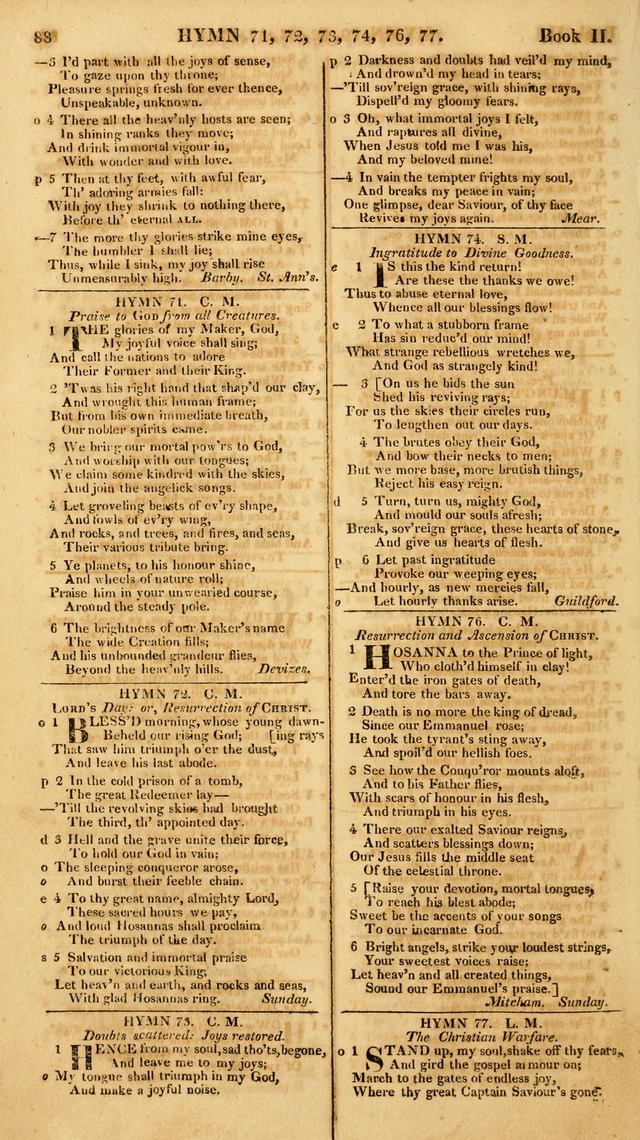 88 HYMN 71, 72, 73, 74, 76, 77. Book II.
—3 I'd part with all the joys of sense,
To gaze upon thy throne;
Pleasure springs fresh for ever thence,
Unspeakable, unknown.
o 4 There all the heav'nly hosts are seen;
In shining ranks they move;
And drink immortal vigour in,
With wonder and with love.
p 5 Then at thy feet, with awful fear,
Th' adoring armies fall:
With joy they shrink to nothing there,
Before th' eternal ALL.
—7 The more thy glories strike mine eyes,
The humbler I shall lie;
Thus, while I sink, my joy shall rise
Unmeasurably high. Barby. St. Ann's.
HYMN 71. C. M.
Praise to GOD from all Creatures.
1 THE glories of my Maker, God,
My joyful voice shall sing;
And call the nations to adore
Their Former and their King.
2 'Twas his right hand that shap'd our clay,
And wrought this human frame;
But from his own immediate breath,
Our nobler spirits came.
3 We bring our mortal pow'rs to God,
And worship with our tongues;
We claim some kindred with the skies,
And join the angelick songs.
4 Let groveling beasts of ev'ry shape,
And fowls of ev'ry wing,
And rocks, and trees, and fires, and seas,
Their various tribute bring.
5 Ye planets, to his honour shine,
And wheels of nature roll;
Praise him in your unwearied course,
Around the steady pole.
6 The brightness of our Maker's name
The wide Creation fills;
And his unbounded grandeur flies,
Beyond the heav'nly hills. Devizes.
HYMN 72. C. M.
LORD'S Day: or, Resurrection of CHRIST.
o 1 BLESS'D morning, whose young dawn-
Beheld our rising God; [ing rays
That saw him triumph o'er the dust,
And leave his last abode.
p 2 In the cold prison of a tomb,
The great Redeemer lay—
—'Till the revolving skies had brought
The third, th' appointed day.
d 3 Hell and the grave unite their force,
To hold our God in vain;
o The sleeping conqueror arose,
o And burst their feeble chain.
e 4 To thy great name, almighty Lord,
These sacred hours we pay,
o And loud Hosannas shall proclaim
The triumph of the day.
s 5 Salvation and immortal praise
To our victorious King;
Let heav'n and earth, and rocks and seas,
With glad Hosannas ring. Sunday.
HYMN 73. C. M.
Doubts scattered: Joys restored.
1 HENCE from my soul, sad tho'ts, begone,
And leave me to my joys;
o My tongue shall triumph in my God,
And make a joyful noise.
p 2 Darkness and doubts had veil'd my mind,
And drown'd my head in tears;
—'Till sov'reign grace, with shining rays,
Dispell'd my gloomy fears.
o 3 Oh, what immortal joys I felt,
And raptures all divine,
When Jesus told me I was his,
And my beloved mine!
—4 In vain the tempter frights my soul,
And breaks my peace in vain;
One glimpse, dear Saviour, of thy face
Revives my joys again. Mear.
HYMN 74. S. M.
Ingratitude to Divine Goodness.
e 1 IS this the kind return!
Are these the thanks we owe!
Thus to abuse eternal love,
Whence all our blessings flow!
e 2 To what a stubborn frame
Has sin reduc'd our mind!
What strange rebellious wretches we,
And God as strangely kind!
— 3 [On us he bids the sun
Shed his reviving rays;
For us the skies their circles run,
To lengthen out our days.
4 The brutes obey their God,
And bow their necks to men;
But we more base, more brutish things,
Reject his easy reign.
d 5 Turn, turn us, mighty God,
And mould our souls afresh;
Break, sov'reign grace, these hearts of stone,
And give us hearts of flesh.
p 6 Let past ingratitude
Provoke our weeping eyes;
—And hourly, as new mercies fall,
o Let hourly thanks arise. Guildford.
HYMN 76. C. M.
Resurrection and Ascension of CHRIST.
1 HOSANNA to the Prince of light,
Who cloth'd himself in clay!
Enter'd the iron gates of death,
And tore the bars away.
2 Death is no more the king of dread,
Since our Emmanuel rose;
He took the tyrant's sting away,
And spoil'd our hellish foes.
3 See how the Conqu'ror mounts aloft,
And to his Father flies,
With scars of honour in his flesh,
And triumph in his eyes.
4 There our exalted Saviour reigns,
And scatters blessings down;
Our Jesus fills the middle seat
Of the celestial throne.
5 [Raise your devotion, mortal tongues,
To reach his blest abode;
Sweet be the accents of your songs
To our incarnate God.
6 Bright angels, strike your loudest strings,
Your sweetest voices raise;
Let heav'n and all created things,
Sound our Emmanuel's praise.]
Mitcham. Sunday.
HYMN 77. L. M.
The Christian Warfare.
o 1 STAND up, my soul, shake off thy fears,
And gird the gospel armour on;
March to the gates of endless joy,
Where thy great Captain Saviour's gone.